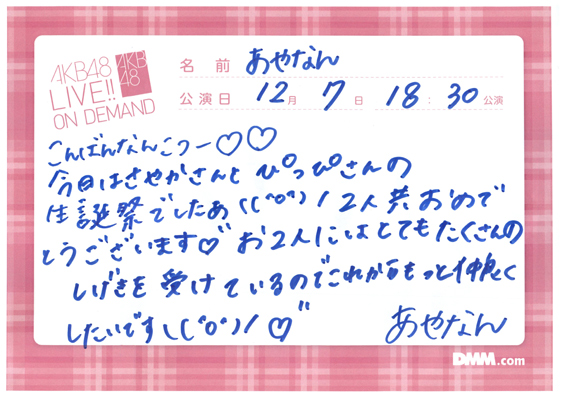 AKB48
LIVE!!
ON DEMAND
AKB
48
名前 あやなん
公演日 12月 7日 18:30公演
こんばんなんこつー♡♡
今日はさやかさんと ぴっぴさんの
生誕祭でしたあ\(^o^)/2人共おめで
とうございます♡" お2人にはとてもたくさんの
しげきを受けているのでこれからもっと仲良く
したいです\(^o^)/♡"
あやなん
DMM.com